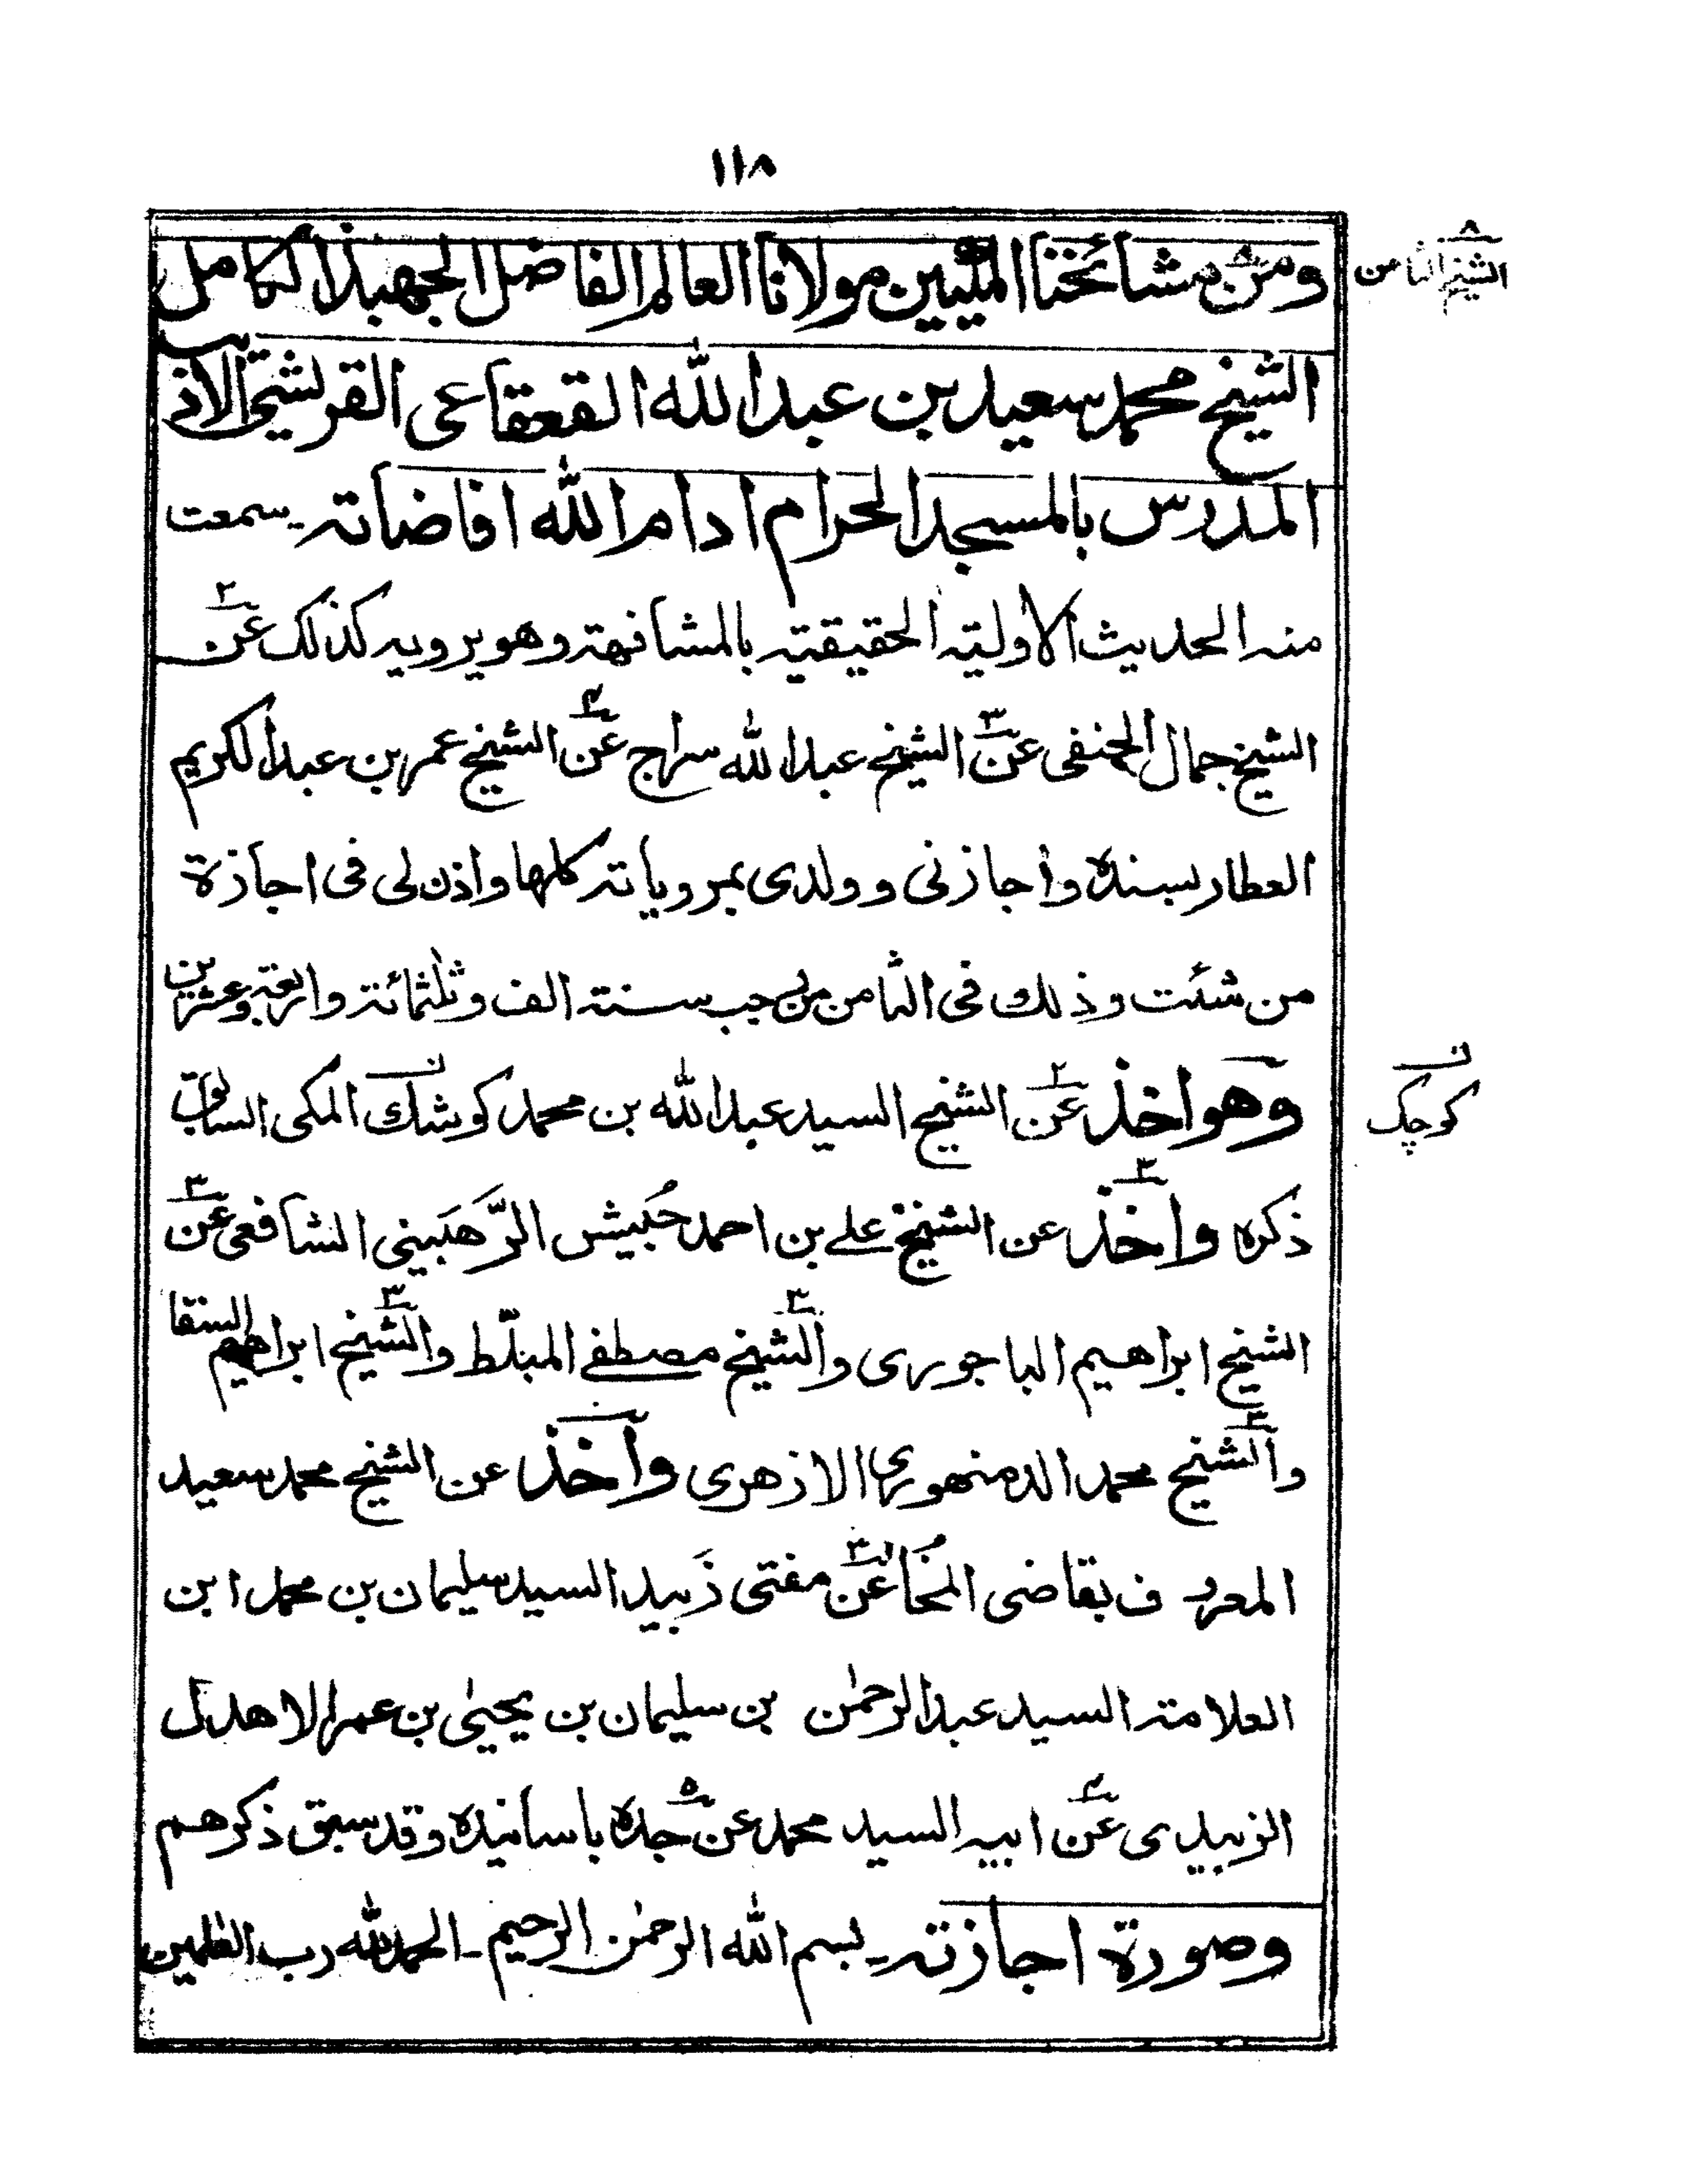 ١١٨
ومن مشائخنا المكيين مولانا العالم الفاضل الجهبذ الكامل
الشيخ الثامن
الشيخ محمد سعيد بن عبد الله القعقاعى القرشى الاديب
المدرس بالمسجد الحرام ادام الله افاضاته۔ سمعت
منه الحديث الاولية الحقيقية بالمشافهة وهو يرويه كذلك عن
الشيخ جمال الحنفى عن الشيخ عبد الله سراج عن الشيخ عمر بن عبد الكريم
العطار بسنده وأجازنى وولدى بمروياته كلها واذن لى فى اجازة
من شئت وذلك فى الثامن من رجب سنة الف وثلثمائة واربعة وعشرين
وهو اخذ عن الشيخ السيد عبد الله بن محمد كوشك المكى السابق
كوچك
ذكره وأخذ عن الشيخ على بن احمد حُبيش الرَّهَبينى الشافعى عن
الشيخ ابراهيم الباجورى والشيخ مصطفى المبلّط والشيخ ابراهيم السقا
والشيخ محمد الدمنهورى الازهرى وأخذ عن الشيخ محمد سعيد
المعروف بقاضى المُخَا عن مفتى زَبيد السيد سليمان بن محمد ابن
العلامة السيد عبد الرحمٰن بن سليمان بن يحيىٰ بن عمر الاهدل
الزبيدى عن ابيه السيد محمد عن جده باسانيده وقد سبق ذكرهم
وصورة اجازته۔ بسم الله الرحمٰن الرحيم۔ الحمد لله رب العٰلمين